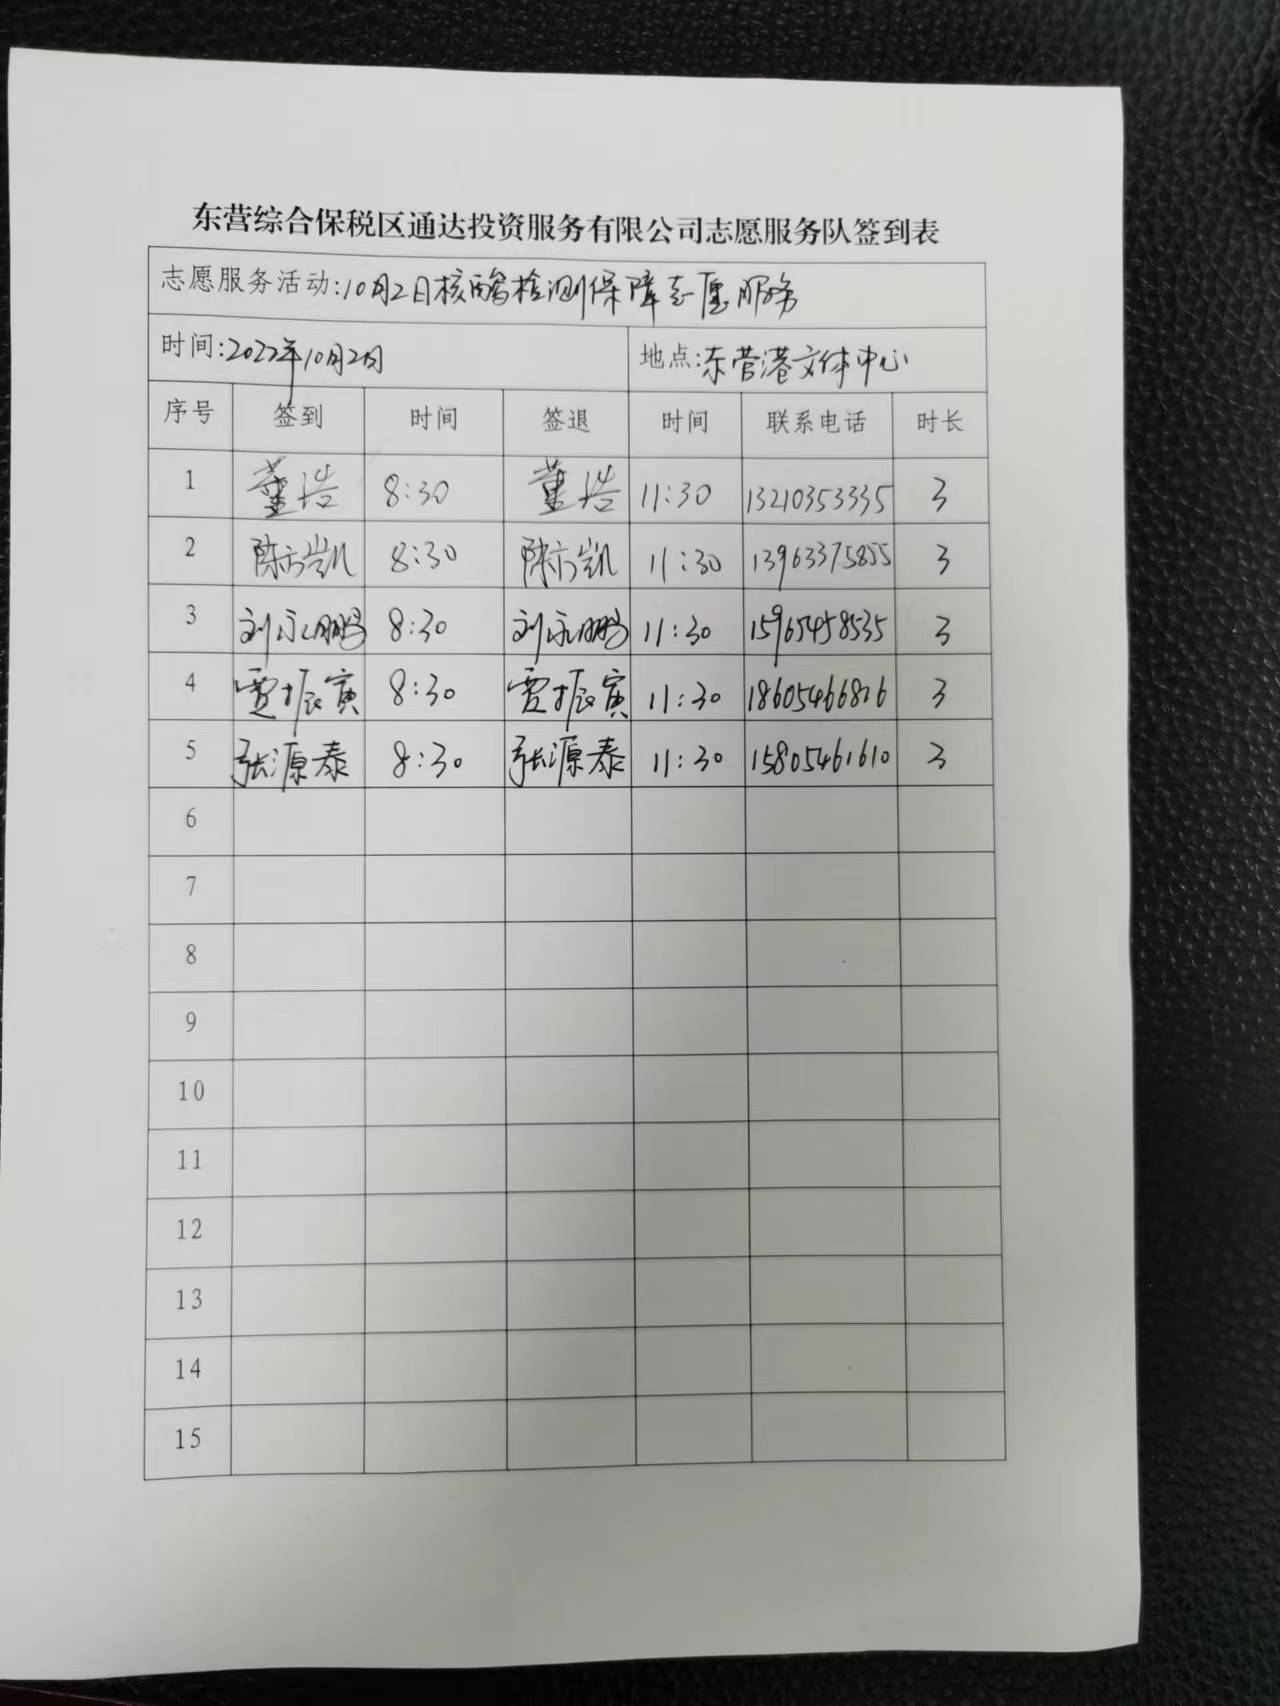 东营综合保税区通达投资服务有限公司志愿服务队签到表
志愿服务活动:10月2日核酸检测保障志愿服务
时间:2022年10月2日 地点:东营港文体中心
序号 签到 时间 签退 时间 联系电话 时长
1 董浩 8:30 董浩 11:30 13210353335 3
2 陈方凯 8:30 陈方凯 11:30 13963375855 3
3 刘永鹏 8:30 刘永鹏 11:30 15965458535 3
4 贾振寅 8:30 贾振寅 11:30 18605466816 3
5 张源泰 8:30 张源泰 11:30 15805461610 3
6
7
8
9
10
11
12
13
14
15